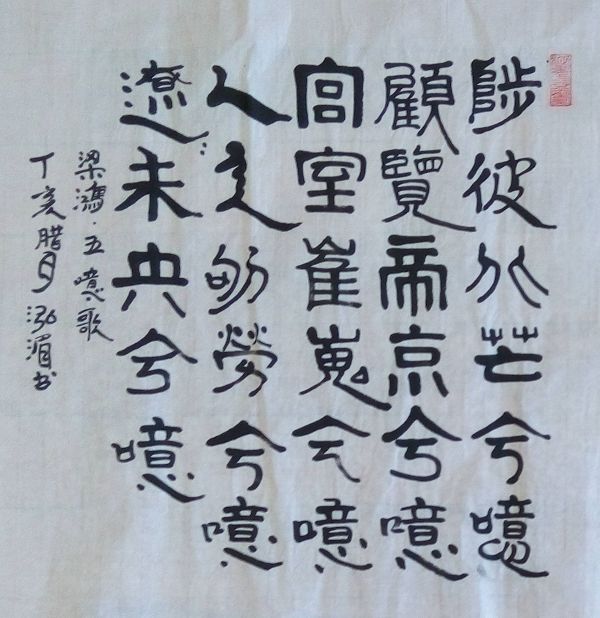 陟彼北芒兮噫
顧覽帝京兮噫
宮室崔嵬兮噫
人之劬勞兮噫
遼未央兮噫
梁鴻·五噫歌
丁亥腊月泓湄书